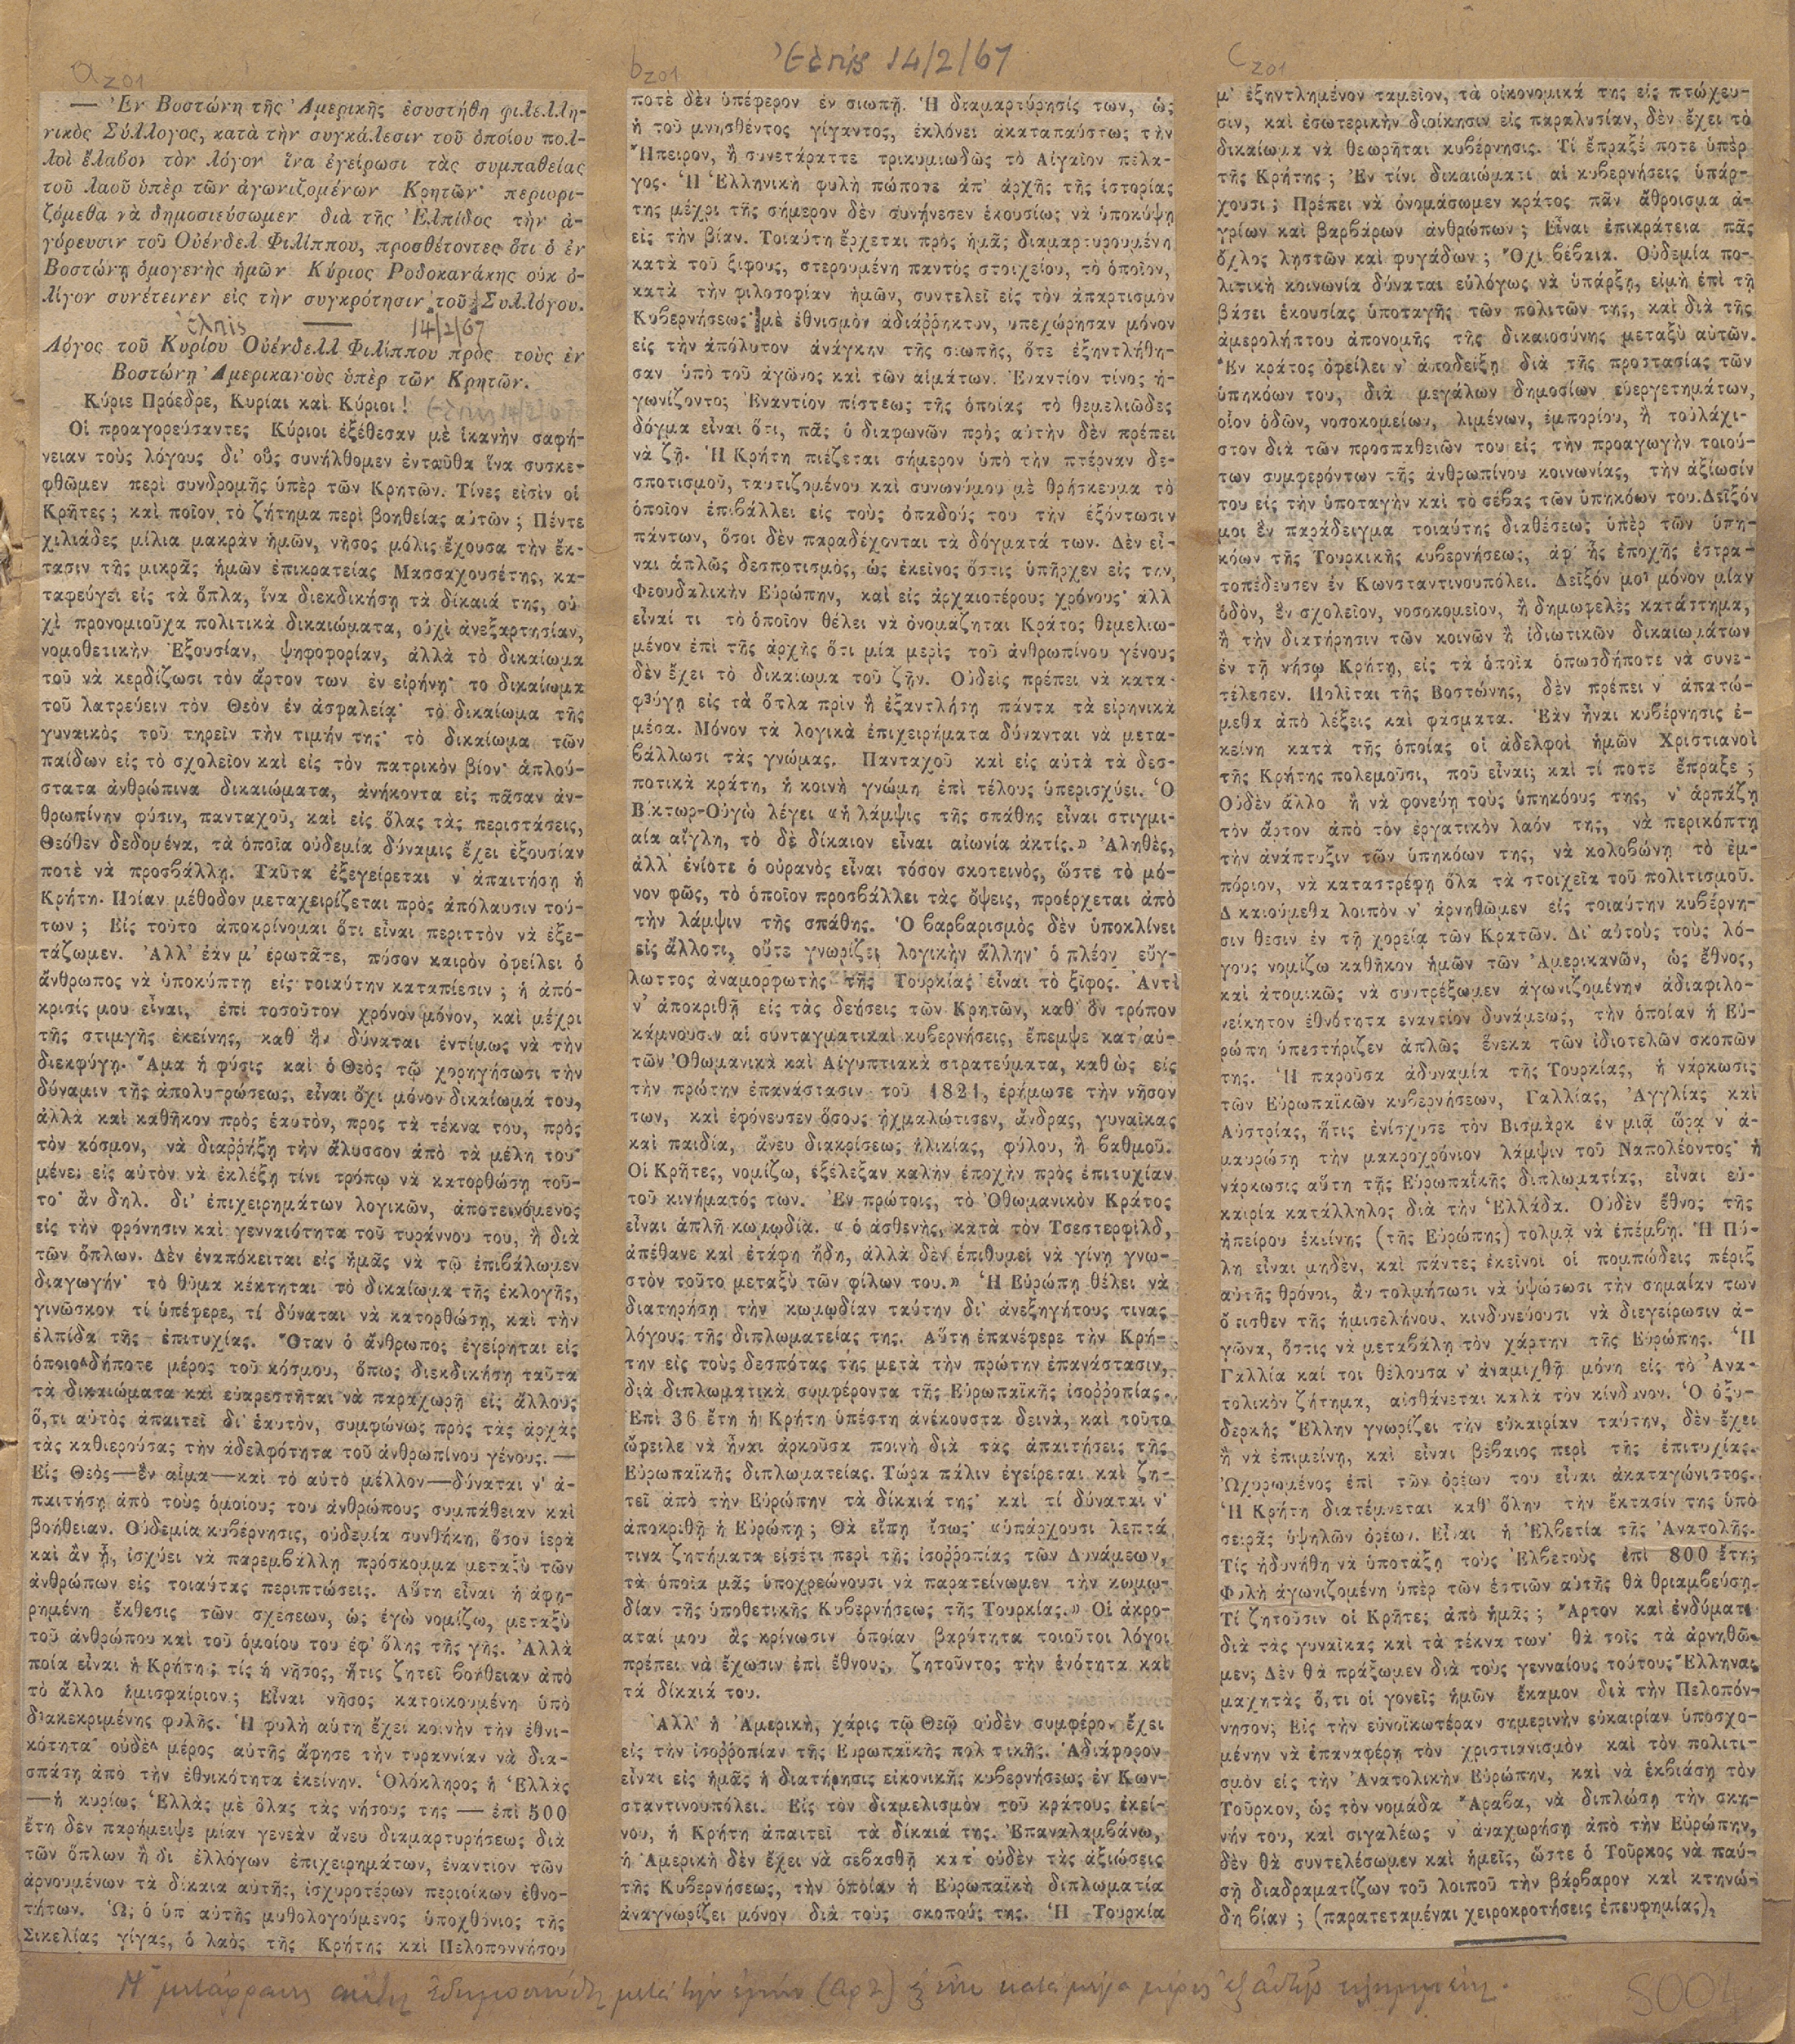 Ἐλπὶς 14/2/67
a201
— Ἐν Βοστώνῃ τῆς Ἀμερικῆς ἐσυστήθη φιλελλη-
νικὸς Σύλλογος, κατὰ τὴν συγκάλεσιν τοῦ ὁποίου πολ-
λοὶ ἔλαβον τὸν λόγον ἵνα ἐγείρωσι τὰς συμπαθείας
τοῦ λαοῦ ὑπὲρ τῶν ἀγωνιζομένων Κρητῶν· περιορι-
ζόμεθα νὰ δημοσιεύσωμεν διὰ τῆς Ἐλπίδος τὴν ἀ-
γόρευσιν τοῦ Οὐένδελ Φιλίππου, προσθέτοντες ὅτι ὁ ἐν
Βοστώνῃ ὁμογενὴς ἡμῶν Κύριος Ροδοκανάκης οὐκ ὀ-
λίγον συνέτεινεν εἰς τὴν συγκρότησιν τοῦ Συλλόγου.
ἐλπὶς 14/2/67
Λόγος τοῦ Κυρίου Οὐένδελλ Φιλίππου πρὸς τοὺς ἐν
Βοστώνῃ Ἀμερικανοὺς ὑπὲρ τῶν Κρητῶν.
Κύριε Πρόεδρε, Κυρίαι καὶ Κύριοι! Ἐλπὶς 14/2/67
Οἱ προαγορεύσαντες Κύριοι ἐξέθεσαν μὲ ἱκανὴν σαφή-
νειαν τοὺς λόγους δι' οὓς συνήλθομεν ἐνταῦθα ἵνα συσκε-
φθῶμεν περὶ συνδρομῆς ὑπὲρ τῶν Κρητῶν. Τίνες εἰσὶν οἱ
Κρῆτες; καὶ ποῖον τὸ ζήτημα περὶ βοηθείας αὐτῶν; Πέντε
χιλιάδες μίλια μακρὰν ἡμῶν, νῆσος μόλις ἔχουσα τὴν ἔκ-
τασιν τῆς μικρᾶς ἡμῶν ἐπικρατείας Μασσαχουσέτης, κα-
ταφεύγει εἰς τὰ ὅπλα, ἵνα διεκδικήσῃ τὰ δίκαιά της, οὐ
χὶ προνομιοῦχα πολιτικὰ δικαιώματα, οὐχὶ ἀνεξαρτησίαν,
νομοθετικὴν Ἐξουσίαν, ψηφοφορίαν, ἀλλὰ τὸ δικαίωμα
τοῦ νὰ κερδίζωσι τὸν ἄρτον των ἐν εἰρήνῃ· το δικαίωμα
τοῦ λατρεύειν τὸν Θεὸν ἐν ἀσφαλείᾳ· τὸ δικαίωμα τῆς
γυναικὸς τοῦ τηρεῖν τὴν τιμήν της· τὸ δικαίωμα τῶν
παίδων εἰς τὸ σχολεῖον καὶ εἰς τὸν πατρικὸν βίον· ἁπλού-
στατα ἀνθρώπινα δικαιώματα, ἀνήκοντα εἰς πᾶσαν ἀν-
θρωπίνην φύσιν, πανταχοῦ, καὶ εἰς ὅλας τὰς περιστάσεις,
Θεόθεν δεδομένα, τὰ ὁποῖα οὐδεμία δύναμις ἔχει ἐξουσίαν
ποτὲ νὰ προσβάλλῃ. Ταῦτα ἐξεγείρεται ν' ἀπαιτήσῃ ἡ
Κρήτη. Ποίαν μέθοδον μεταχειρίζεται πρὸς ἀπόλαυσιν τού-
των; Εἰς τοῦτο ἀποκρίνομαι ὅτι εἶναι περιττὸν νὰ ἐξε-
τάζωμεν. Ἀλλ' ἐάν μ' ἐρωτᾶτε, πόσον καιρὸν ὀφείλει ὁ
ἄνθρωπος νὰ ὑποκύπτῃ εἰς τοιαύτην καταπίεσιν; ἡ ἀπό-
κρισίς μου εἶναι, ἐπὶ τοσοῦτον χρόνον μόνον, καὶ μέχρι
τῆς στιμγῆς ἐκείνης, καθ' ἣν δύναται ἐντίμως νὰ τὴν
διεκφύγῃ. Ἅμα ἡ φύσις καὶ ὁ Θεὸς τῷ χορηγήσωσι τὴν
δύναμιν τῆς ἀπολυτρώσεως, εἶναι ὄχι μόνον δικαίωμά του,
ἀλλὰ καὶ καθῆκον πρὸς ἑαυτὸν, προς τὰ τέκνα του, πρὸς
τὸν κόσμον, νὰ διαῤῥήξῃ τὴν ἄλυσσον ἀπὸ τὰ μέλη του·
μένει εἰς αὐτὸν νὰ ἐκλέξῃ τίνι τρόπῳ νὰ κατορθώσῃ τοῦ-
το· ἂν δηλ. δι' ἐπιχειρημάτων λογικῶν, ἀποτεινόμενος
εἰς τὴν φρόνησιν καὶ γενναιότητα τοῦ τυράννου του, ἢ διὰ
τῶν ὅπλων. Δὲν ἐναπόκειται εἰς ἡμᾶς νὰ τῷ ἐπιβάλωμεν
διαγωγήν· τὸ θῦμα κέκτηται τὸ δικαίωμα τῆς ἐκλογῆς,
γινῶσκον τί ὑπέφερε, τί δύναται νὰ κατορθώσῃ, καὶ τὴν
ἐλπίδα τῆς ἐπιτυχίας. Ὅταν ὁ ἄνθρωπος ἐγείρηται εἰς
ὁποιοδήποτε μέρος τοῦ κόσμου, ὅπως διεκδικήσῃ ταῦτα
τὰ δικαιώματα καὶ εὐαρεστῆται νὰ παραχωρῇ εἰς ἄλλους
ὅ,τι αὐτὸς ἀπαιτεῖ δι' ἑαυτὸν, συμφώνως πρὸς τὰς ἀρχὰς
τὰς καθιερούσας τὴν ἀδελφότητα τοῦ ἀνθρωπίνου γένους. —
Εἷς Θεὸς—ἓν αἷμα—καὶ τὸ αὐτὸ μέλλον—δύναται ν' ἀ-
παιτήσῃ ἀπὸ τοὺς ὁμοίους του ἀνθρώπους συμπάθειαν καὶ
βοήθειαν. Οὐδεμία κυβέρνησις, οὐδεμία συνθήκη, ὅσον ἱερὰ
καὶ ἂν ᾖ, ἰσχύει νὰ παρεμβάλλῃ πρόσκομμα μεταξὺ τῶν
ἀνθρώπων εἰς τοιαύτας περιπτώσεις. Αὕτη εἶναι ἡ ἀφῃ-
ρημένη ἔκθεσις τῶν σχέσεων, ὡς ἐγὼ νομίζω, μεταξὺ
τοῦ ἀνθρώπου καὶ τοῦ ὁμοίου του ἐφ' ὅλης τῆς γῆς. Ἀλλὰ
ποία εἶναι ἡ Κρήτη; τίς ἡ νῆσος, ἥτις ζητεῖ βοήθειαν ἀπὸ
τὸ ἄλλο ἡμισφαίριον; Εἶναι νῆσος κατοικουμένη ὑπὸ
διακεκριμένης φυλῆς. Ἡ φυλὴ αὕτη ἔχει κοινὴν τὴν ἐθνι-
κότητα· οὐδὲν μέρος αὐτῆς ἄφησε τὴν τυραννίαν νὰ δια-
σπάσῃ ἀπὸ τὴν ἐθνικότητα ἐκείνην. Ὁλόκληρος ἡ Ἑλλὰς
—ἡ κυρίως Ἑλλὰς μὲ ὅλας τὰς νήσους της — ἐπὶ 500
ἔτη δὲν παρήμειψε μίαν γενεὰν ἄνευ διαμαρτυρήσεως διὰ
τῶν ὅπλων ἢ δι ἐλλόγων ἐπιχειρημάτων, ἐναντίον τῶν
ἀρνουμένων τὰ δίκαια αὐτῆς, ἰσχυροτέρων περιοίκων ἐθνο-
τήτων. Ὡς ὁ ὑπ' αὐτῆς μυθολογούμενος ὑποχθόνιος τῆς
Σικελίας γίγας, ὁ λαὸς τῆς Κρήτης καὶ Πελοποννήσου
b201
ποτὲ δὲν ὑπέφερον ἐν σιωπῇ. Ἡ διαμαρτύρησίς των, ὡς
ἡ τοῦ μνησθέντος γίγαντος, ἐκλόνει ἀκαταπαύστως τὴν
Ἤπειρον, ἢ συνετάραττε τρικυμιωδῶς τὸ Αἰγαῖον πέλα-
γος. Ἡ Ἑλληνικὴ φυλὴ πώποτε ἀπ' ἀρχῆς τῆς ἱστορίας
της μέχρι τῆς σήμερον δὲν συνήνεσεν ἑκουσίως νὰ ὑποκύψῃ
εἰς τὴν βίαν. Τοιαύτη ἔρχεται πρὸς ἡμᾶς διαμαρτυρουμένη
κατὰ τοῦ ξίφους, στερουμένη παντὸς στοιχείου, τὸ ὁποῖον,
κατὰ τὴν φιλοσοφίαν ἡμῶν, συντελεῖ εἰς τὸν ἀπαρτισμὸν
Κυβερνήσεως· μὲ ἐθνισμὸν ἀδιάῤῥηκτον, υπεχώρησαν μόνον
εἰς τὴν ἀπόλυτον ἀνάγκην τῆς σιωπῆς, ὅτε ἐξηντλήθη-
σαν ὑπὸ τοῦ ἀγῶνος καὶ τῶν αἱμάτων. Ἐναντίον τίνος ἠ-
γωνίζοντο; Ἐναντίον πίστεως τῆς ὁποίας τὸ θεμελιῶδες
δόγμα εἶναι ὅτι, πᾶς ὁ διαφωνῶν πρὸς αὐτὴν δὲν πρέπει
νὰ ζῇ. Ἡ Κρήτη πιέζεται σήμερον ὑπὸ τὴν πτέρναν δε-
σποτισμοῦ, ταυτιζομένου καὶ συνωνύμου μὲ θρήσκευμα τὸ
ὁποῖον ἐπιβάλλει εἰς τοὺς ὀπαδούς του τὴν ἐξόντωσιν
πάντων, ὅσοι δὲν παραδέχονται τὰ δόγματά των. Δὲν εἶ-
ναι ἁπλῶς δεσποτισμὸς, ὡς ἐκεῖνος ὅστις ὑπῆρχεν εἰς την
Φεουδαλικὴν Εὐρώπην, καὶ εἰς ἀρχαιοτέρους χρόνους· ἀλλ
εἶναί τι τὸ ὁποῖον θέλει νὰ ὀνομάζηται Κράτος θεμελιω-
μένον ἐπὶ τῆς ἀρχῆς ὅτι μία μερὶς τοῦ ἀνθρωπίνου γένους
δὲν ἔχει τὸ δικαίωμα τοῦ ζῇν. Οὐδεὶς πρέπει νὰ κατα-
φύγῃ εἰς τὰ ὅπλα πρὶν ἢ ἐξαντλήσῃ πάντα τὰ εἰρηνικὰ
μέσα. Μόνον τὰ λογικὰ ἐπιχειρήματα δύνανται νὰ μετα-
βάλλωσι τὰς γνώμας. Πανταχοῦ καὶ εἰς αὐτὰ τὰ δεσ-
ποτικὰ κράτη, ἡ κοινὴ γνώμη ἐπὶ τέλους ὑπερισχύει. Ὁ
Βίκτωρ-Οὑγὼ λέγει «ἡ λάμψις τῆς σπάθης εἶναι στιγμι-
αία αἴγλη, τὸ δὲ δίκαιον εἶναι αἰωνία ἀκτίς.» Ἀληθὲς,
ἀλλ' ἐνίοτε ὁ οὐρανὸς εἶναι τόσον σκοτεινὸς, ὥστε τὸ μό-
νον φῶς, τὸ ὁποῖον προσβάλλει τὰς ὄψεις, προέρχεται ἀπὸ
τὴν λάμψιν τῆς σπάθης. Ὁ βαρβαρισμὸς δὲν ὑποκλίνει
εἰς ἄλλοτι, οὔτε γνωρίζει λογικὴν ἄλλην· ὁ πλέον εὔγ-
λωττος ἀναμορφωτὴς τῆς Τουρκίας εἶναι τὸ ξίφος. Ἀντὶ
ν' ἀποκριθῇ εἰς τὰς δεήσεις τῶν Κρητῶν, καθ' ὃν τρόπον
κάμνουσιν αἱ συνταγματικαὶ κυβερνήσεις, ἔπεμψε κατ' αὐ-
τῶν Ὀθωμανικὰ καὶ Αἰγυπτιακὰ στρατεύματα, καθὼς εἰς
τὴν πρώτην ἐπανάστασιν τοῦ 1821, ἐρήμωσε τὴν νῆσον
των, καὶ ἐφόνευσεν ὅσους ᾐχμαλώτισεν, ἄνδρας, γυναῖκας
καὶ παιδία, ἄνευ διακρίσεως ἡλικίας, φύλου, ἢ βαθμοῦ.
Οἱ Κρῆτες, νομίζω, ἐξέλεξαν καλὴν ἐποχὴν πρὸς ἐπιτυχίαν
τοῦ κινήματός των. Ἐν πρώτοις, τὸ Ὀθωμανικὸν Κράτος
εἶναι ἁπλῆ κωμῳδία. «ὁ ἀσθενὴς, κατὰ τὸν Τσεστερφίλδ,
ἀπέθανε καὶ ἐτάφη ἤδη, ἀλλὰ δὲν ἐπιθυμεῖ νὰ γίνῃ γνω-
στὸν τοῦτο μεταξὺ τῶν φίλων του.» Ἡ Εὐρώπη θέλει νὰ
διατηρήσῃ τὴν κωμῳδίαν ταύτην δι' ἀνεξηγήτους τινας
λόγους τῆς διπλωματείας της. Αὕτη ἐπανέφερε τὴν Κρή-
την εἰς τοὺς δεσπότας της μετὰ τὴν πρώτην ἐπανάστασιν,
διὰ διπλωματικὰ συμφέροντα τῆς Εὐρωπαϊκῆς ἰσοῤῥοπίας.
Ἐπὶ 36 ἔτη ἡ Κρήτη ὑπέστη ἀνέκουστα δεινὰ, καὶ τοῦτο
ὤφειλε νὰ ἦναι ἀρκοῦσα ποινὴ διὰ τὰς ἀπαιτήσεις τῆς
Εὐρωπαϊκῆς διπλωματείας. Τώρα πάλιν ἐγείρεται καὶ ζη-
τεῖ ἀπὸ τὴν Εὐρώπην τὰ δίκαιά της· καὶ τί δύναται ν'
ἀποκριθῇ ἡ Εὐρώπη; Θὰ εἴπῃ ἴσως· «ὑπάρχουσι λεπτά
τινα ζητήματα εἰσέτι περὶ τῆς ἰσοῤῥοπίας τῶν Δυνάμεων,
τὰ ὁποῖα μᾶς ὑποχρεώνουσι νὰ παρατείνωμεν τὴν κωμῳ-
δίαν τῆς ὑποθετικῆς Κυβερνήσεως τῆς Τουρκίας.» Οἱ ἀκρο-
αταί μου ἂς κρίνωσιν ὁποίαν βαρύτητα τοιοῦτοι λόγοι
πρέπει νὰ ἔχωσιν ἐπὶ ἔθνους, ζητοῦντος τὴν ἑνότητα καὶ
τά δίκαιά του.
Ἀλλ' ἡ Ἀμερικὴ, χάρις τῷ Θεῷ οὐδὲν συμφέρον ἔχει
εἰς τὴν ἰσοῤῥοπίαν τῆς Εὐρωπαϊκῆς πολιτικῆς. Ἀδιάφορον
εἶναι εἰς ἡμᾶς ἡ διατήρησις εἰκονικῆς κυβερνήσεως ἐν Κων-
σταντινουπόλει. Εἰς τὸν διαμελισμὸν τοῦ κράτους ἐκεί-
νου, ἡ Κρήτη ἀπαιτεῖ τὰ δίκαιά της. Ἐπαναλαμβάνω,
ἡ Ἀμερικὴ δὲν ἔχει νὰ σεβασθῇ κατ' οὐδὲν τὰς ἀξιώσεις
τῆς Κυβερνήσεως, τὴν ὁποίαν ἡ Εὐρωπαϊκὴ διπλωματία
ἀναγνωρίζει μόνον διὰ τοὺς σκοπούς της. Ἡ Τουρκία
c201
μ' ἐξηντλημένον ταμεῖον, τὰ οἰκονομικά της εἰς πτώχευ-
σιν, καὶ ἐσωτερικὴν διοίκησιν εἰς παραλυσίαν, δὲν ἔχει τὸ
δικαίωμα νὰ θεωρῆται κυβέρνησις. Τί ἔπραξέ ποτε ὑπὲρ
τῆς Κρήτης; Ἐν τίνι δικαιώματι αἱ κυβερνήσεις ὑπάρ-
χουσι; Πρέπει νὰ ὀνομάσωμεν κράτος πᾶν ἄθροισμα ἀ-
γρίων καὶ βαρβάρων ἀνθρώπων; Εἶναι ἐπικράτεια πᾶς
ὄχλος λῃστῶν καὶ φυγάδων; Ὄχι βέβαια. Οὐδεμία πο-
λιτικὴ κοινωνία δύναται εὐλόγως νὰ ὑπάρξῃ, εἰμὴ ἐπὶ τῇ
βάσει ἑκουσίας ὑποταγῆς τῶν πολιτῶν της, καὶ διὰ τῆς
ἀμερολήπτου ἀπονομῆς τῆς δικαιοσύνης μεταξὺ αὐτῶν.
Ἓν κράτος ὀφείλει ν' ἀποδείξῃ διὰ τῆς προστασίας τῶν
ὑπηκόων του, διὰ μεγάλων δημοσίων εὐεργετημάτων,
οἷον ὁδῶν, νοσοκομείων, λιμένων, ἐμπορίου, ἢ τοὐλάχι-
στον διὰ τῶν προσπαθειῶν του εἰς τὴν προαγωγὴν τοιού-
των συμφερόντων τῆς ἀνθρωπίνου κοινωνίας, τὴν ἀξίωσίν
του εἰς τὴν ὑποταγὴν καὶ τὸ σέβας τῶν ὑπηκόων του. Δεῖξόν
μοι ἓν παράδειγμα τοιαύτης διαθέσεως ὑπὲρ τῶν ὑπη-
κόων τῆς Τουρκικῆς κυβερνήσεως, ἀφ' ἧς ἐποχῆς ἐστρα-
τοπέδευσεν ἐν Κωνσταντινουπόλει. Δεῖξόν μοι μόνον μίαν
ὁδὸν, ἓν σχολεῖον, νοσοκομεῖον, ἢ δημωφελὲς κατάστημα,
ἢ τὴν διατήρησιν τῶν κοινῶν ἢ ἰδιωτικῶν δικαιωμάτων
ἐν τῇ νήσῳ Κρήτῃ, εἰς τὰ ὁποῖα ὁπωσδήποτε νὰ συνε-
τέλεσεν. Πολῖται τῆς Βοστώνης, δὲν πρέπει ν' ἀπατώ-
μεθα ἀπὸ λέξεις καὶ φάσματα. Ἐὰν ἦναι κυβέρνησις ἐ-
κείνη κατὰ τῆς ὁποίας οἱ ἀδελφοὶ ἡμῶν Χριστιανοὶ
τῆς Κρήτης πολεμοῦσι, ποῦ εἶναι; καὶ τί ποτε ἔπραξε;
Οὐδὲν ἄλλο ἢ νὰ φονεύῃ τοὺς ὑπηκόους της, ν' ἁρπάζῃ
τὸν ἄρτον ἀπὸ τὸν ἐργατικὸν λαόν της, νὰ περικόπτῃ
τὴν ἀνάπτυξιν τῶν ὑπηκόων της, νὰ κολοβώνῃ τὸ ἐμ-
πόριον, νὰ καταστρέφῃ ὅλα τὰ στοιχεῖα τοῦ πολιτισμοῦ.
Δικαιούμεθα λοιπὸν ν' ἀρνηθῶμεν εἰς τοιαύτην κυβέρνη-
σιν θεσιν ἐν τῇ χορείᾳ τῶν Κρατῶν. Δι' αὐτοὺς τοὺς λό-
γους νομίζω καθῆκον ἡμῶν τῶν Ἀμερικανῶν, ὡς ἔθνος,
καὶ ἀτομικῶς νὰ συντρέξωμεν ἀγωνιζομένην ἀδιαφιλο-
νείκητον ἐθνότητα εναντίον δυνάμεως, τὴν ὁποίαν ἡ Εὐ-
ρώπη ὑπεστήριζεν ἁπλῶς ἕνεκα τῶν ἰδιοτελῶν σκοπῶν
της. Ἡ παροῦσα ἀδυναμία τῆς Τουρκίας, ἡ νάρκωσις
τῶν Εὐρωπαϊκῶν κυβερνήσεων, Γαλλίας, Ἀγγλίας καὶ
Αὐστρίας, ἥτις ἐνίσχυσε τὸν Βισμὰρκ ἐν μιᾷ ὥρᾳ ν' ἀ-
μαυρώσῃ τὴν μακροχρόνιον λάμψιν τοῦ Ναπολέοντος· ἡ
νάρκωσις αὕτη τῆς Εὐρωπαϊκῆς διπλωματίας, εἶναι εὐ-
καιρία κατάλληλος διὰ τὴν Ἑλλάδα. Οὐδὲν ἔθνος τῆς
ἠπείρου ἐκείνης (τῆς Εὐρώπης) τολμᾷ νὰ ἐπέμβῃ. Ἡ Πύ-
λη εἶναι μηδὲν, καὶ πάντες ἐκεῖνοι οἱ πομπώδεις πέριξ
αὐτῆς θρόνοι, ἂν τολμήσωσι νὰ ὑψώσωσι τὴν σημαίαν των
ὄπισθεν τῆς ἡμισελήνου, κινδυνεύουσι νὰ διεγείρωσιν ἀ-
γῶνα, ὅστις νὰ μεταβάλῃ τὸν χάρτην τῆς Εὐρώπης. Ἡ
Γαλλία καί τοι θέλουσα ν' ἀναμιχθῇ μόνη εἰς τὸ Ἀνα-
τολικὸν ζήτημα, αἰσθάνεται καλὰ τὸν κίνδυνον. Ὁ ὀξυ-
δερκὴς Ἕλλην γνωρίζει τὴν εὐκαιρίαν ταύτην, δὲν ἔχει
ἢ νὰ ἐπιμείνῃ, καὶ εἶναι βέβαιος περὶ τῆς ἐπιτυχίας.
Ὠχυρωμένος ἐπὶ τῶν ὀρέων του εἶναι ἀκαταγώνιστος.
Ἡ Κρήτη διατέμνεται καθ' ὅλην τὴν ἔκτασίν της ὑπὸ
σειρᾶς ὑψηλῶν ὀρέων. Εἶναι ἡ Ἐλβετία τῆς Ἀνατολῆς.
Τίς ἠδυνήθη νὰ ὑποτάξῃ τοὺς Ἐλβετοὺς ἐπὶ 800 ἔτη;
Φυλὴ ἀγωνιζομένη ὑπὲρ τῶν ἑστιῶν αὐτῆς θὰ θριαμβεύσῃ.
Τί ζητοῦσιν οἱ Κρῆτες ἀπὸ ἡμᾶς; Ἄρτον καὶ ἐνδύματα
διὰ τὰς γυναῖκας καὶ τὰ τέκνα των· θὰ τοῖς τὰ ἀρνηθῶ-
μεν; Δὲν θὰ πράξωμεν διὰ τοὺς γενναίους τούτους Ἕλληνας
μαχητὰς ὅ,τι οἱ γονεῖς ἡμῶν ἔκαμον διὰ τὴν Πελοπόν-
νησον; Εἰς τὴν εὐνοϊκωτέραν σημερινὴν εὐκαιρίαν ὑποσχο-
μένην νὰ ἐπαναφέρῃ τὸν χριστιανισμὸν καὶ τὸν πολιτι-
σμὸν εἰς τὴν Ἀνατολικὴν Εὐρώπην, καὶ νὰ ἐκβιάσῃ τὸν
Τοῦρκον, ὡς τὸν νομάδα Ἄραβα, νὰ διπλώσῃ τὴν σκη-
νήν του, καὶ σιγαλέως ν' ἀναχωρήσῃ ἀπὸ τὴν Εὐρώπην,
δὲν θὰ συντελέσωμεν καὶ ἡμεῖς, ὥστε ὁ Τοῦρκος νὰ παύ-
σῃ διαδραματίζων τοῦ λοιποῦ τὴν βάρβαρον καὶ κτηνώ-
δη βίαν; (παρατεταμέναι χειροκροτήσεις ἐπευφημίας).
Ἡ μετάφρασις αὕτη ἐδημοσιεύθη μετὰ τὴν ἐμήν κατὰ μέγα μέρος ἐξ αὐτῆς
S004